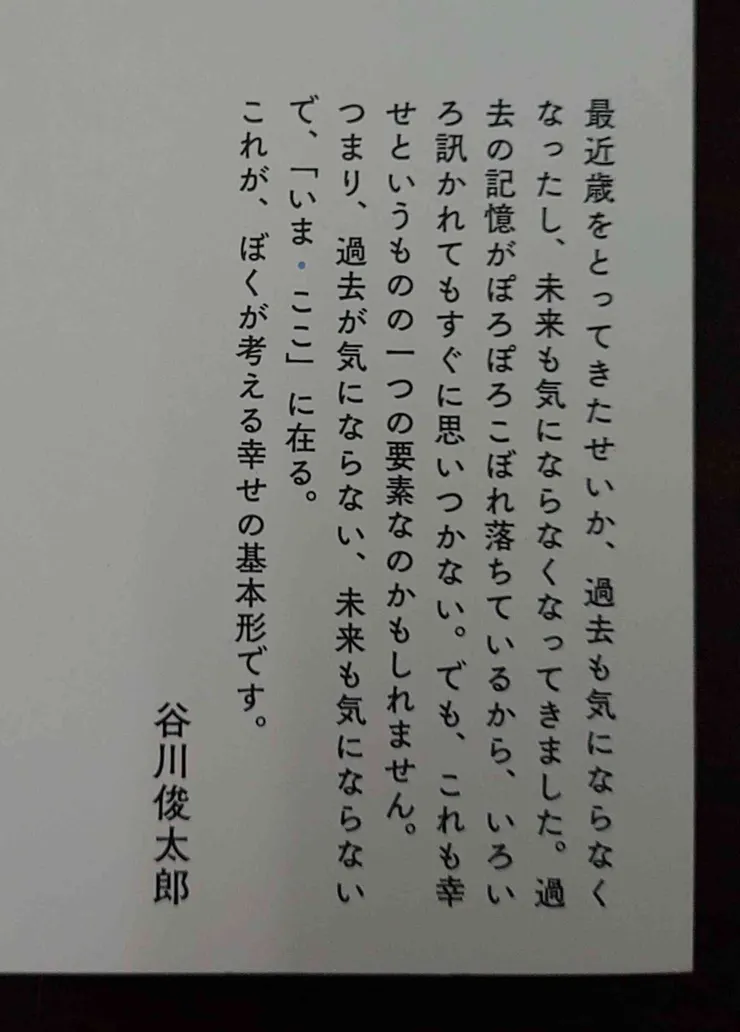 最近歳をとってきたせいか、過去も気にならなく
なったし、未来も気にならなくなってきました。過
去の記憶がぽろぽろこぼれ落ちているから、いろい
ろ訊かれてもすぐに思いつかない。でも、これも幸
せというものの一つの要素なのかもしれません。
つまり、過去が気にならない、未来も気にならない
で、「いま・ここ」に在る。
これが、ぼくが考える幸せの基本形です。
谷川俊太郎